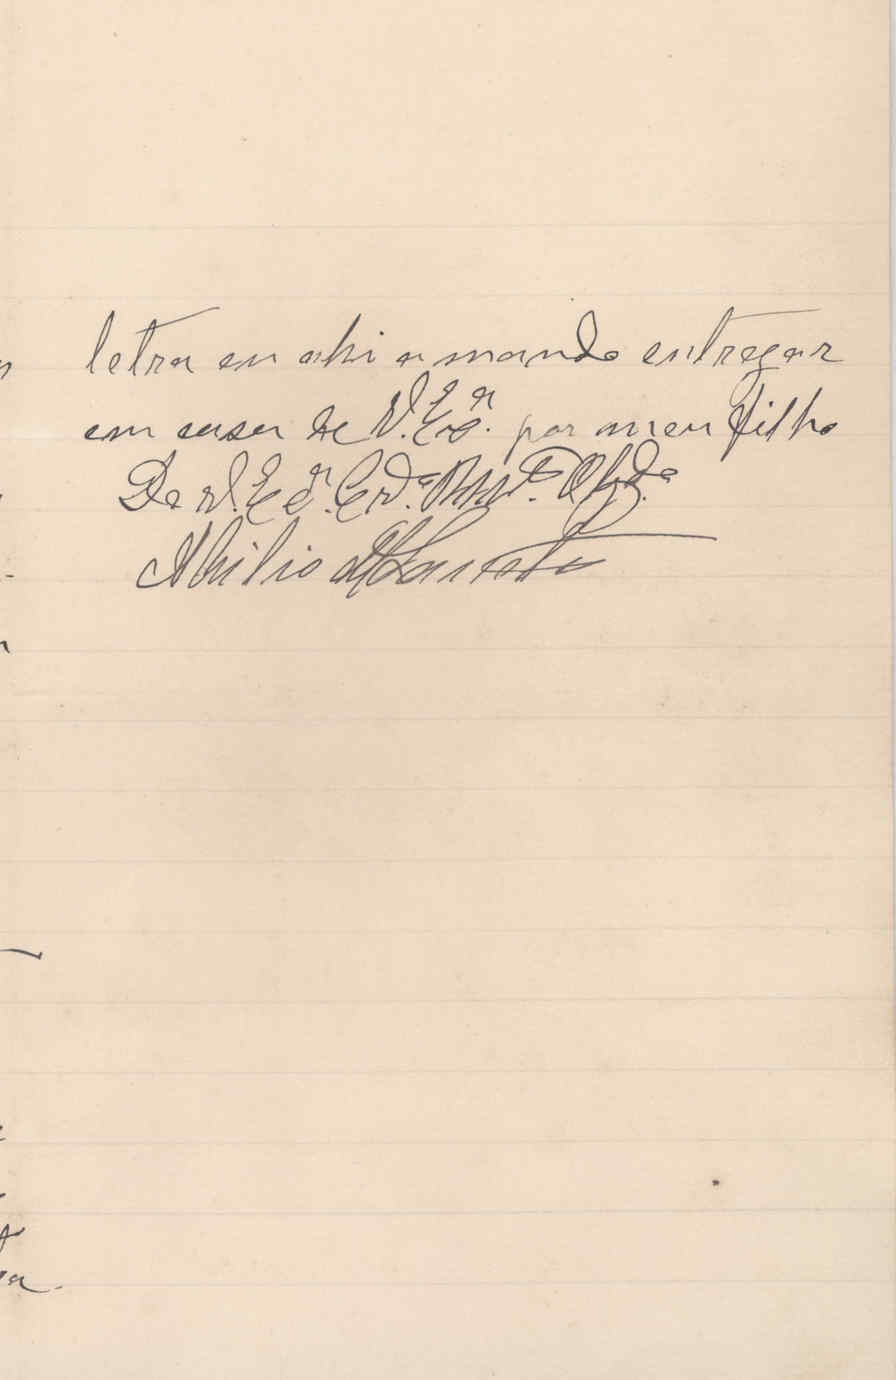 letra eu ahi a mando entregar
em casa de V. Exª. por meu filho
De V. Exª. Crdº. Obgdº
Abilio